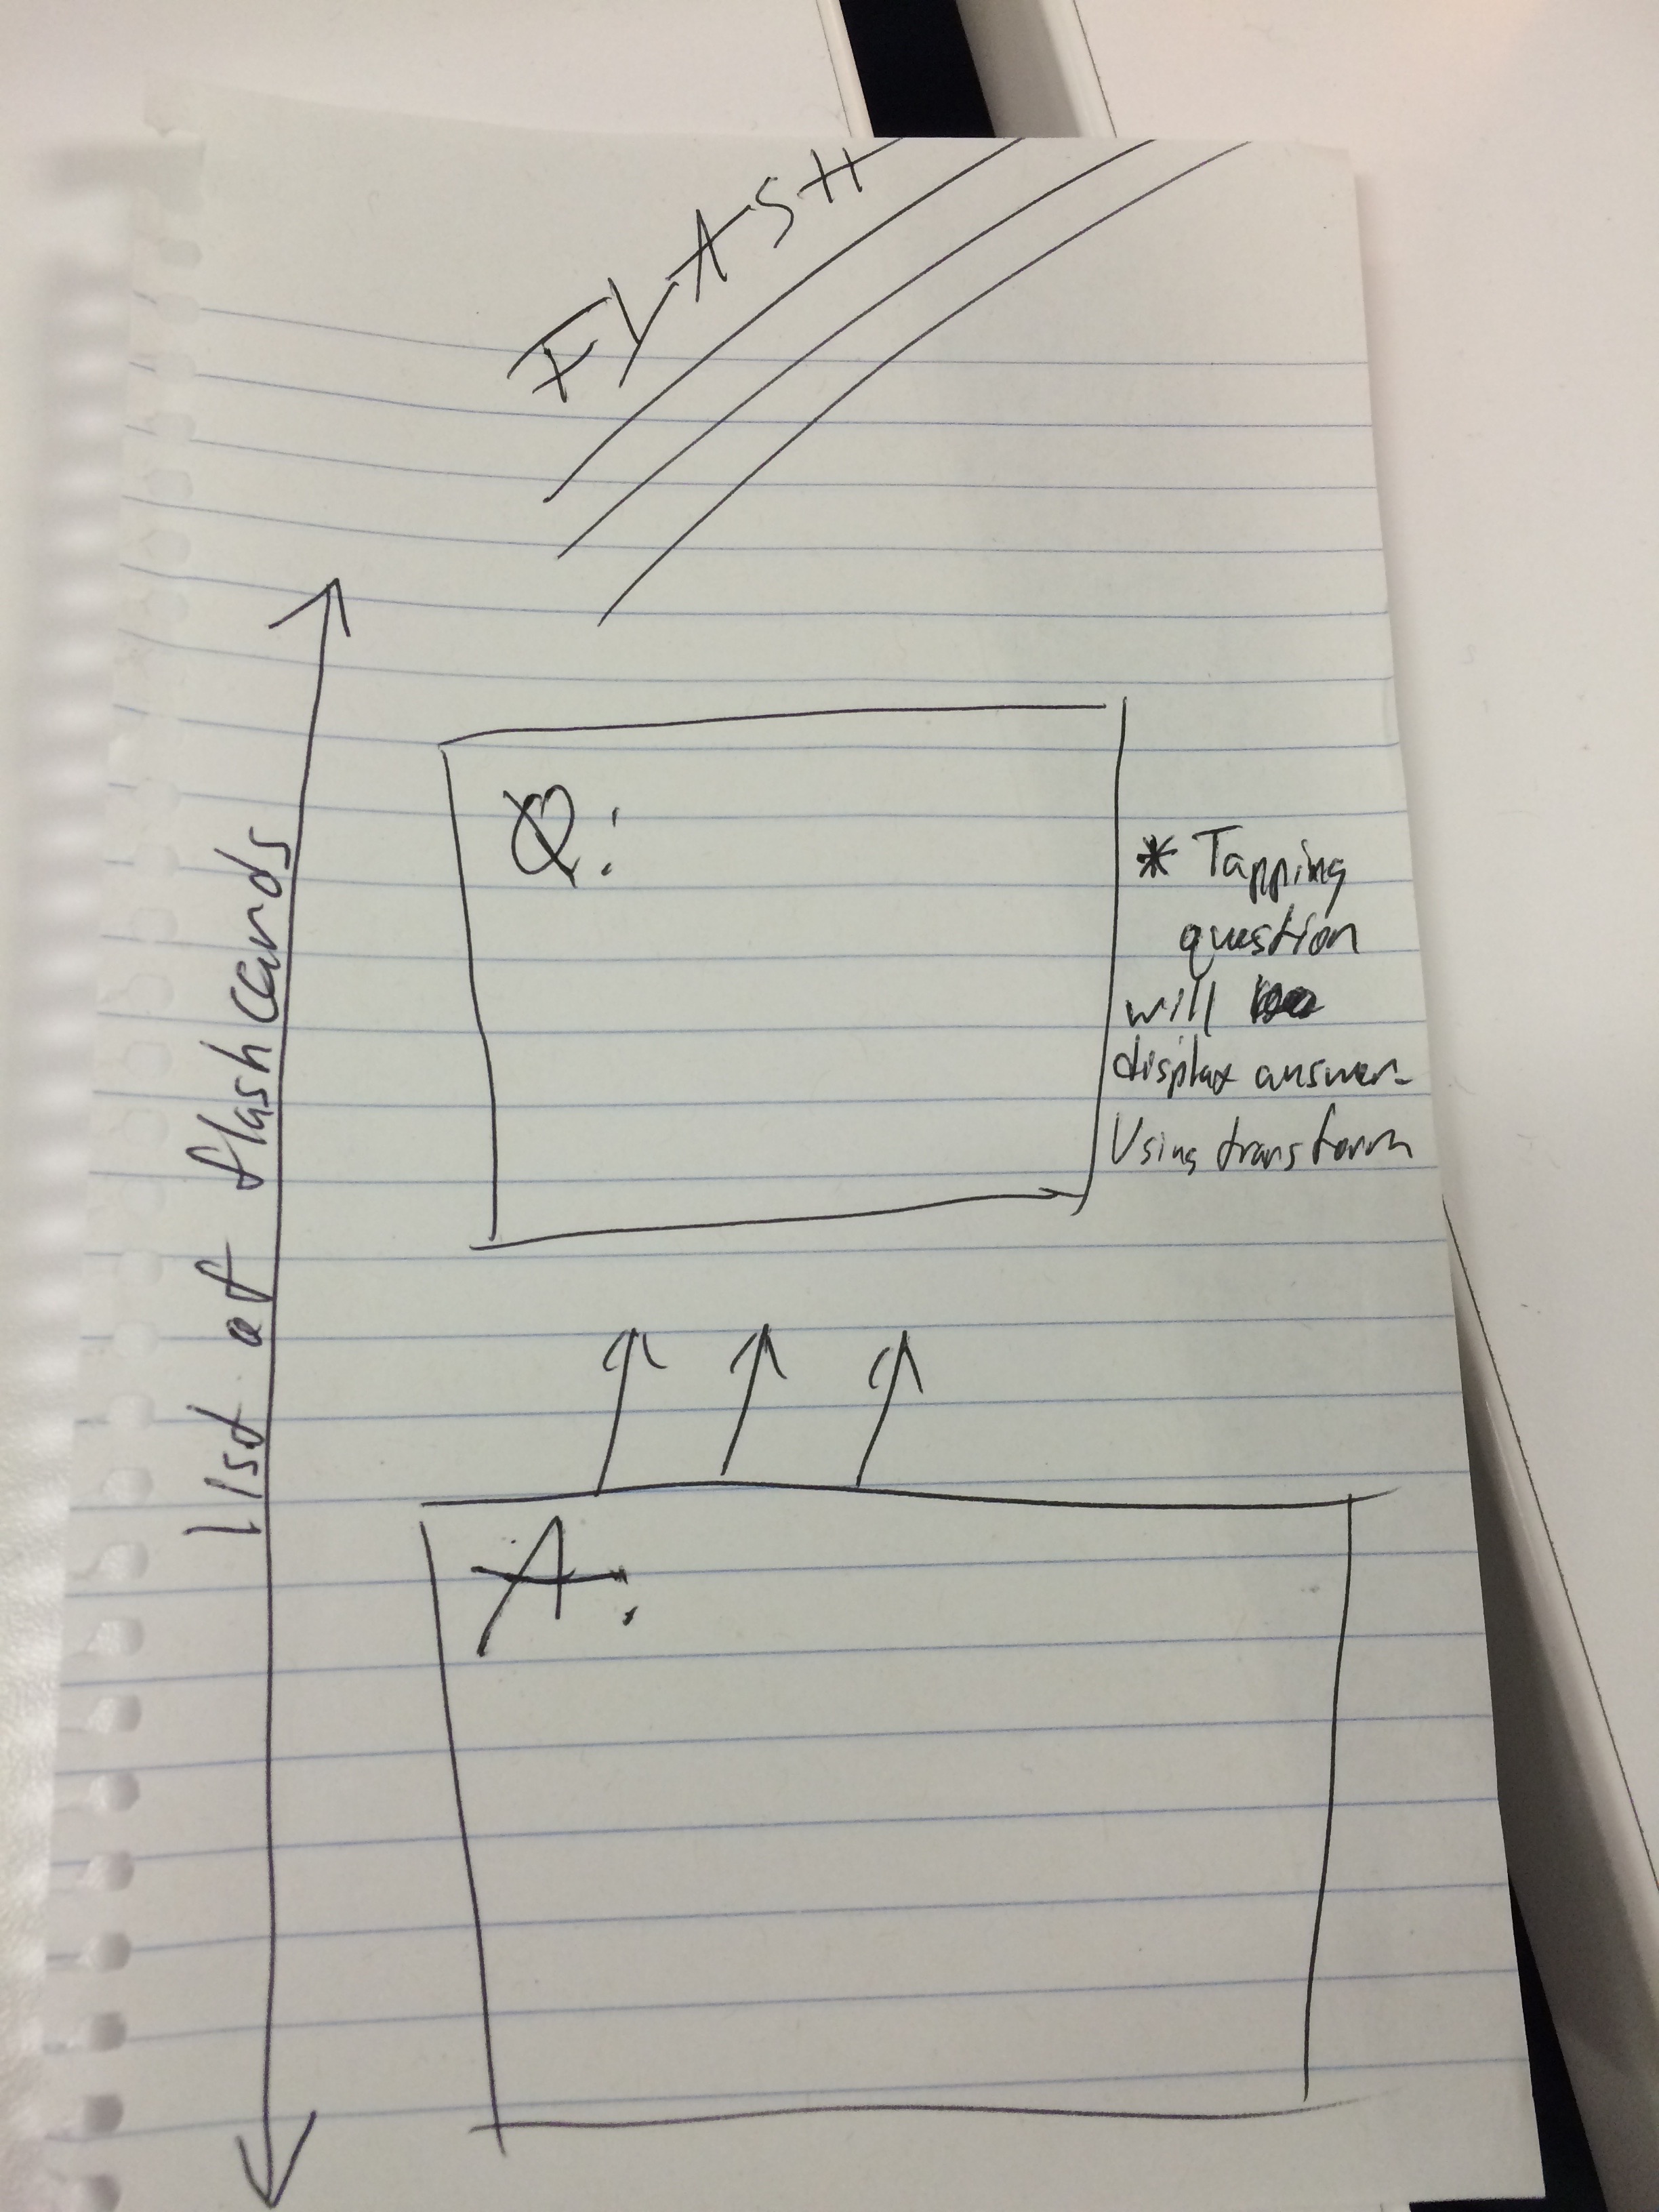 FLASH
List of flashcards
Q:
* Tapping
question
will
display answer.
Using transform
A: